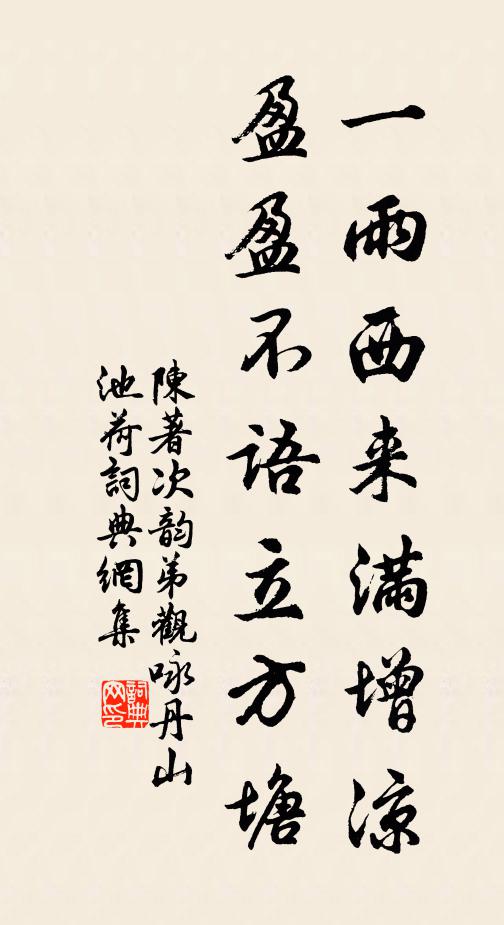 一雨西来滿增凉
盈盈不語立方塘
陳著次韵弟觀咏丹山
池荷詞典網集
詞典网印